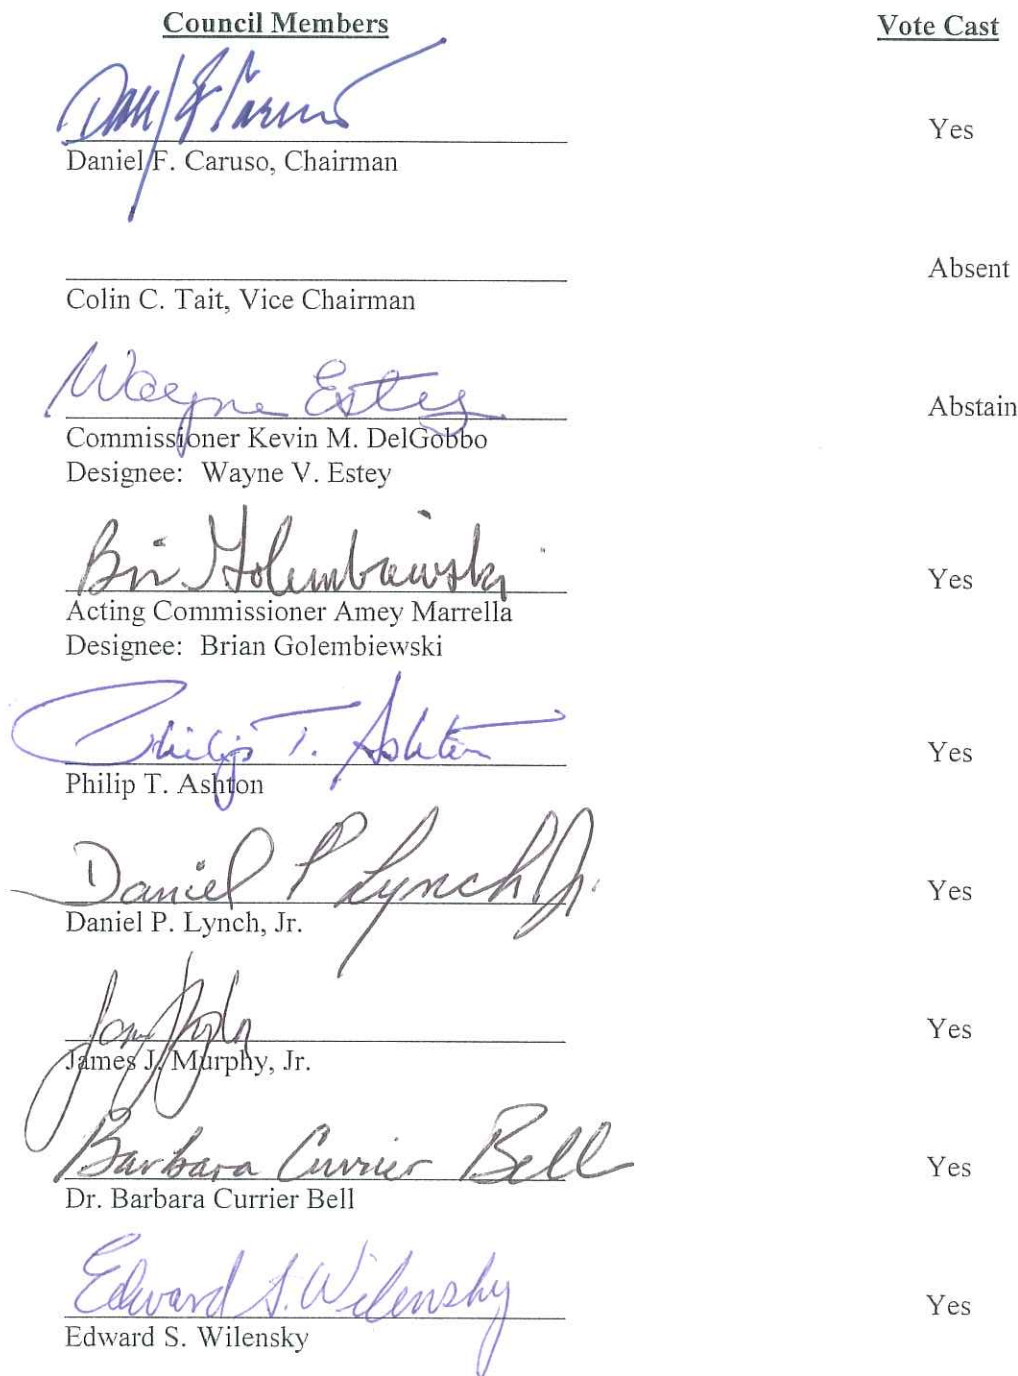 Council Members Vote Cast
Daniel F. Caruso Yes
Daniel F. Caruso, Chairman
Absent
Colin C. Tait, Vice Chairman
Wayne Estey Abstain
Commissioner Kevin M. DelGobbo
Designee: Wayne V. Estey
Brian Golembiewski Yes
Acting Commissioner Amey Marrella
Designee: Brian Golembiewski
Philip T. Ashton Yes
Philip T. Ashton
Daniel P Lynch Jr. Yes
Daniel P. Lynch, Jr.
Yes
James J. Murphy, Jr.
Barbara Currier Bell Yes
Dr. Barbara Currier Bell
Edward S. Wilensky Yes
Edward S. Wilensky